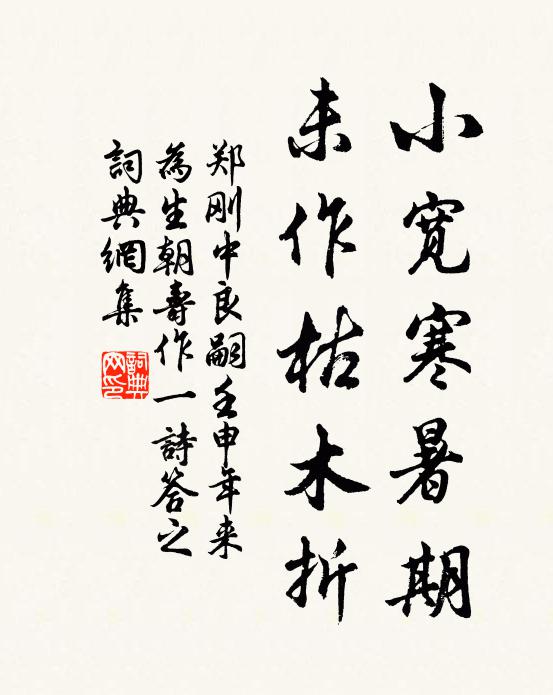 小宽寒暑期
未作枯木折
郑刚中良嗣壬申年来
為生朝壽作一詩答之
詞典網集
詞典网印